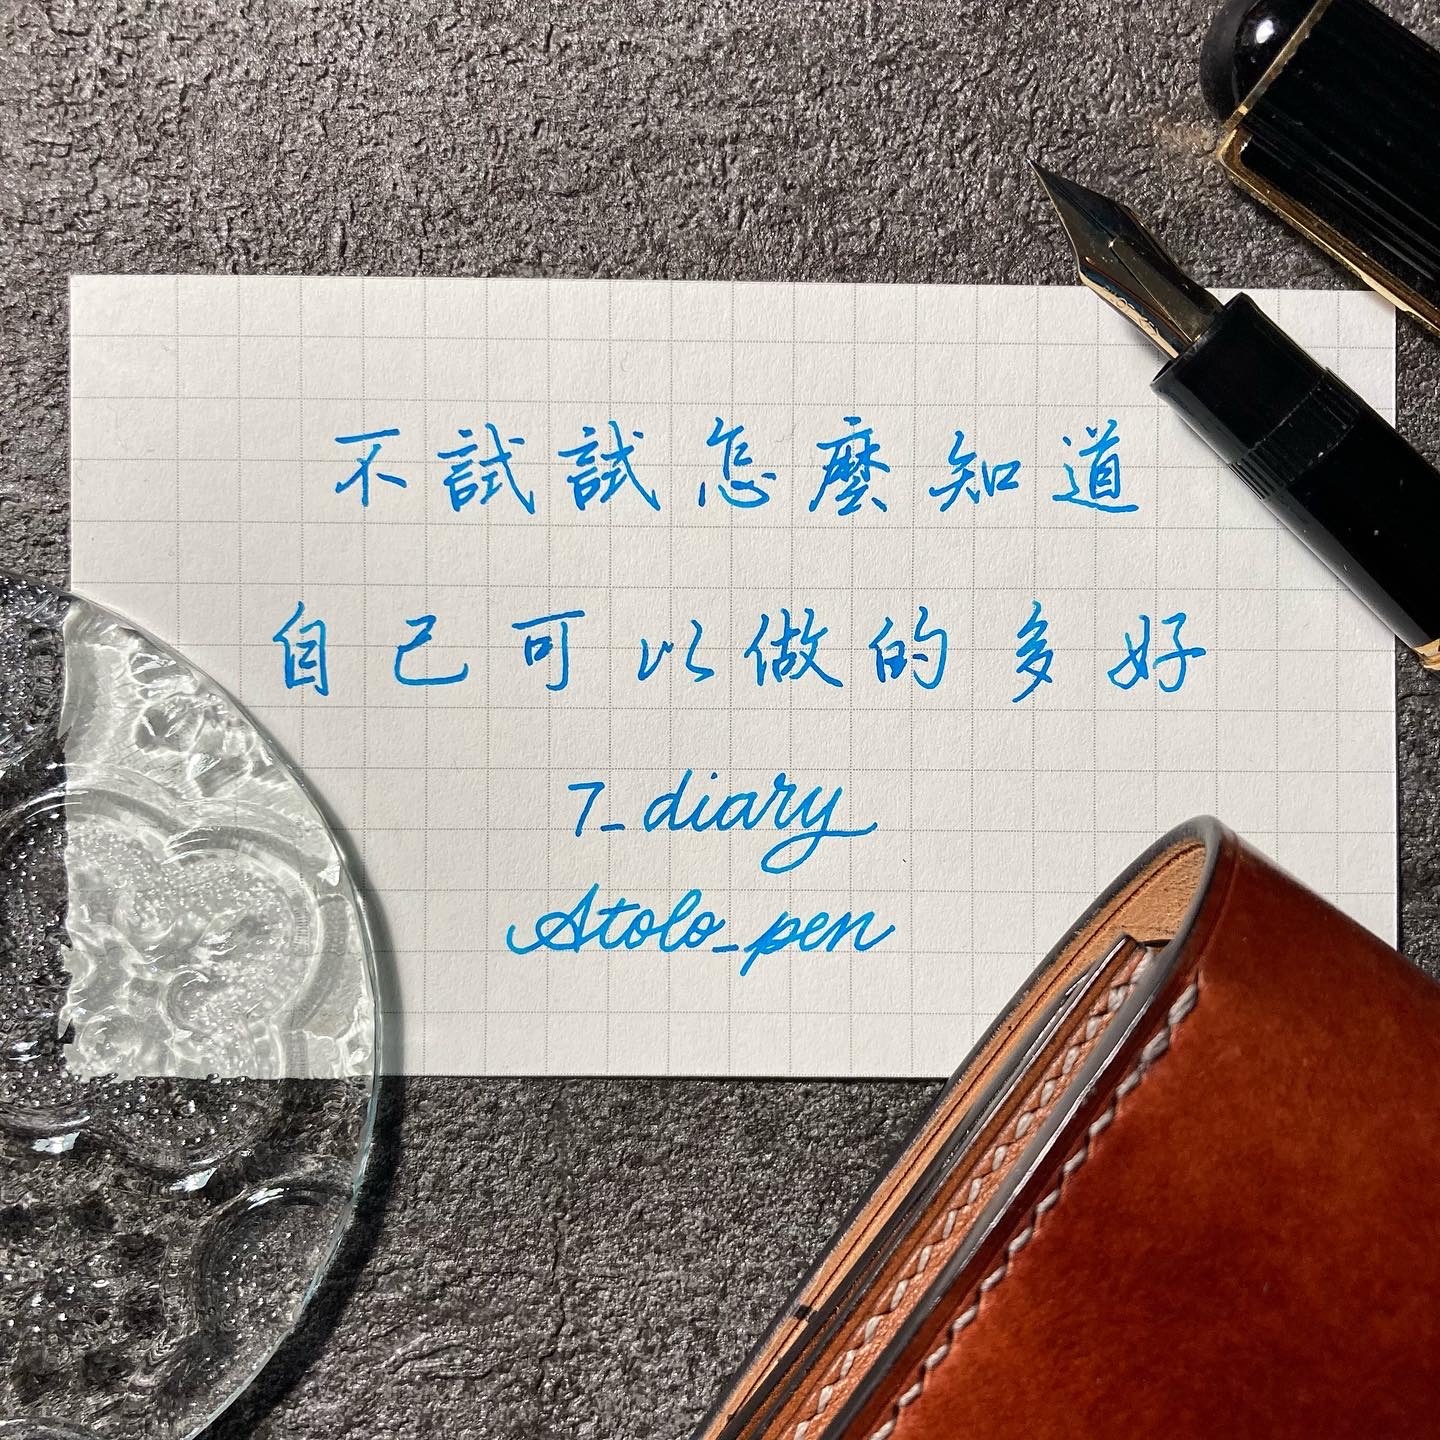 不試試怎麼知道
自己可以做的多好
7_diary
Atolo_pen